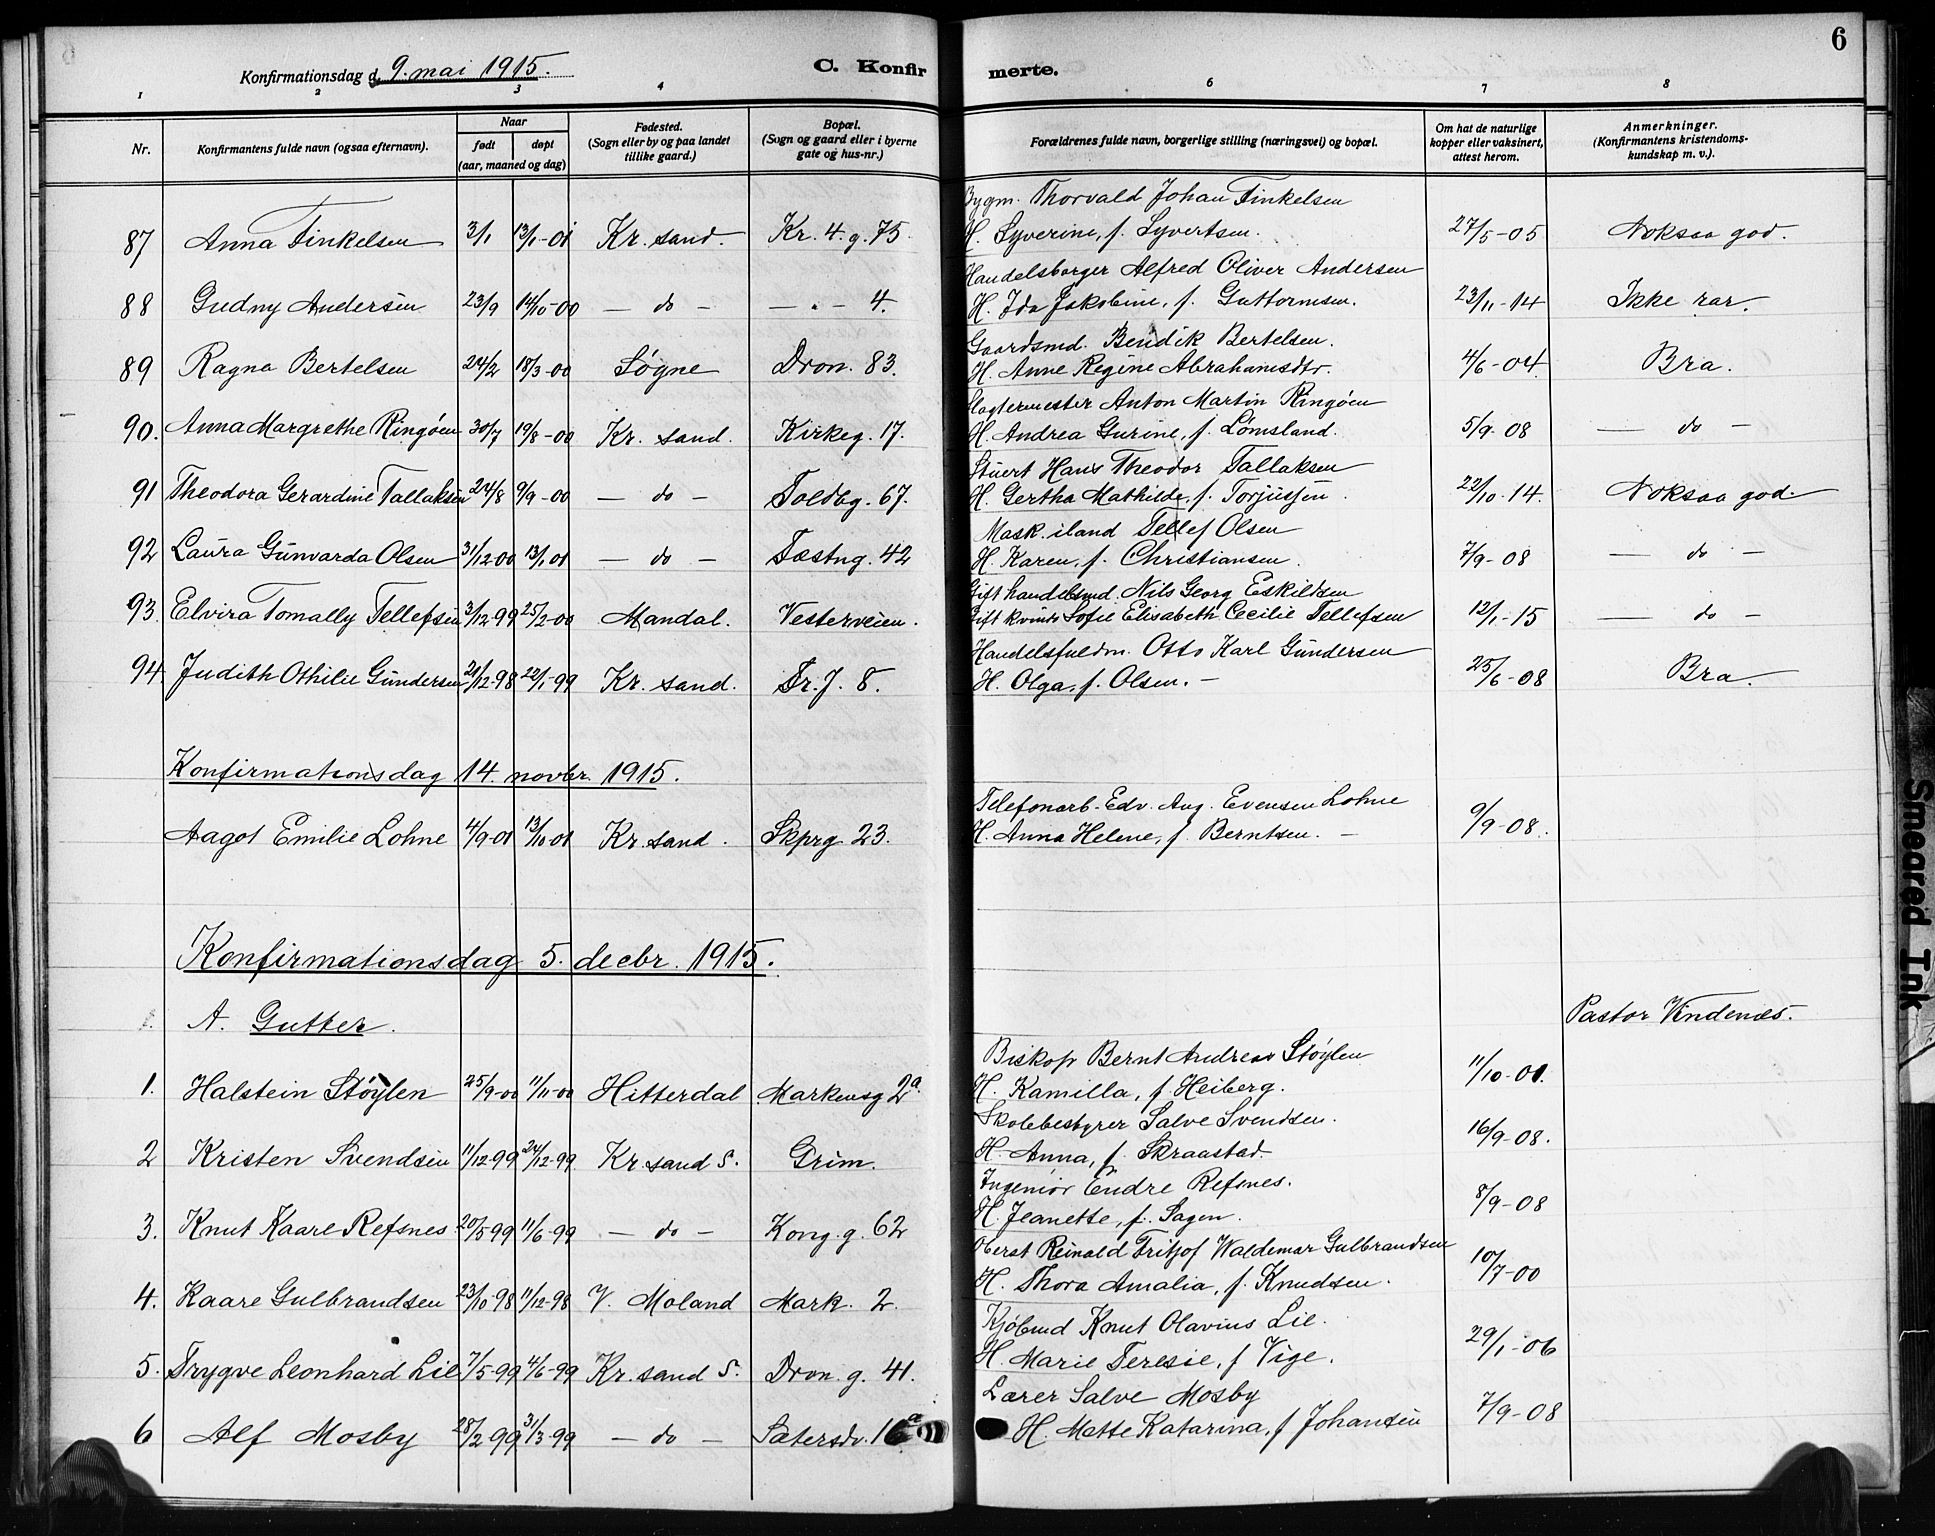 6
Konfirmationsdag d. 9. mai 1915.
C. Konfirmerte.
1 2 3 4 6 7 8
Nr. Konfirmantens fulde navn (ogsaa efternavn). Naar født døpt (aar, maaned og dag) Fødested. (Sogn eller by og paa landet tillike gaard.) Bopæl. (Sogn og gaard eller i byerne gate og hus-nr.) Forældrenes fulde navn, borgerlige stilling (næringsvei) og bopæl. Om hat de naturlige kopper eller vaksinert, attest herom. Anmerkninger. (Konfirmantens kristendomskundskap m. v.).
Bygm. Thorvald Johan Finkelsen
87 Anna Finkelsen 3/1 13/1-01 Kr. sand. Kr. 4. g. 75 H. Syverine, f. Syvertsen. 27/5-05 Noksaa god.
Handelsborger Alfred Oliver Andersen
88 Gudny Andersen 23/9 14/10-00 — do — — " — 4. H. Ida Jakobine, f. Guttormsen. 23/11-14 Ikke rar.
Gaardsmd. Bendik Bertelsen.
89 Ragna Bertelsen 24/2 18/3-00 Søgne Dron. 83. H. Anne Regine Abrahamsdtr. 4/6-04 Bra.
Slagtermester Anton Martin Ringøen
90. Anna Margrethe Ringøen 30/7 19/8-00 Kr. sand. Kirkeg. 17. H. Andrea Gurine, f. Lømsland. 5/9-08 — do —
Stuert Hans Theodor Tallaksen
91 Theodora Gerardine Tallaksen 24/8 9/9-00 — do — Toldbg. 67. H. Gertha Mathilde, f. Torjussen. 22/10-14. Noksaa god.
Mask. iland Tellef Olsen
92 Laura Gunvarda Olsen 31/12-00 13/1 01 — do — Fæstng. 42 H. Karen, f. Christiansen. 7/9-08 — do —
Gift handelsmd. Nils Georg Eskildsen
93. Elvira Tomally Tellefsen 3/12-99 25/2-00 Mandal. Vesterveien. Gift kvinde Sofie Elisabeth Cecilie Tellefsen 12/1-15 — do —
Handelsfuldm. Otto Karl Gundersen
94. Judith Othilie Gundersen 21/12-98 22/1-99 Kr. sand. Fr. J. 8. H. Olga, f. Olsen. — 25/6-08 Bra.
Konfirmationsdag 14. novbr. 1915.
Telefonarb. Edv. Aug. Evensen Lohne
Aagot Emilie Lohne 4/9-01 13/10-01 Kr. sand. Skprg 23. H. Anna Helene, f. Berntsen. — 9/9-08.
Konfirmationsdag 5. decbr. 1915.
A. Gutter. Pastor Vindenæs.
Biskop Bernt Andreas Støylen
1. Halstein Støylen 25/9-00 11/11-00 Hitterdal Markensg 2a. H. Kamilla, f. Heiberg. 11/10-01.
Skolebestyrer Salve Svendsen.
2 Kristen Svendsen 11/12-99 24/12-99. Kr. sand S. Grim. H. Anna, f. Skraastad. 16/9-08.
Ingeniør Endre Refsnes.
3. Knut Kaare Refsnes 20/5 99 11/6-99 — do — Kong. g. 62 H. Jeanette, f. Sagen. 8/9-08
Oberst Reinald Fritjof Waldemar Gulbrandsen
4. Kaare Gulbrandsen 23/10-98 11/12-98 V. Moland Mark. 2. H. Thora Amalia, f. Knudsen. 10/7-00
Kjøbmd Knut Olavius Lie.
5. Trygve Leonhard Lie 7/5-99 4/6-99 Kr. sand S. Dron. g. 41. H. Marie Teresie, f Vige. 29/1-06
Lærer Salve Mosby
6 Alf Mosby 28/2 99 31/3-99 — do — Sætersdv. 16a H. Mette Katarina, f Johansen 7/9-08
Smeared Ink